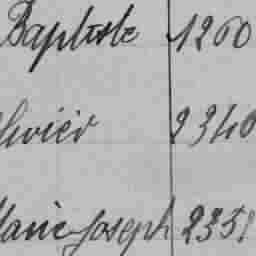 Baptiste 1260
Olivier 2340
Marie-Joseph 2351